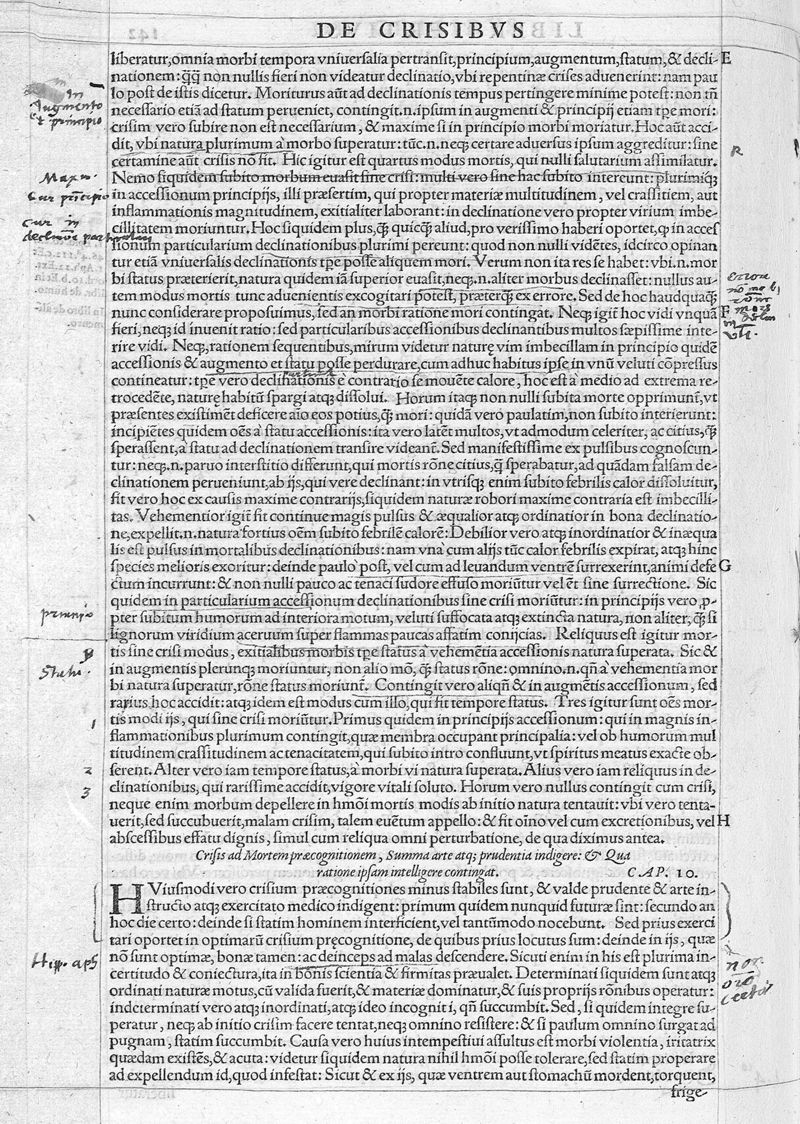 DE CRISIBVS
liberatur, omnia morbi tempora vniuersalia pertransit, principium, augmentum, statum, & decli- E
nationem: q̃q̃ non nullis fieri non videatur declinatio, vbi repentinæ crises aduenerint: nam pau
lo post de istis dicetur. Moriturus aũt ad declinationis tempus pertingere minime potest: non tñ
In
Augmento
et principio
necessario etiã ad statum perueniet, contingit .n. ipsum in augmenti & principij etiam tp̃e mori:
crisim vero subire non est necessarium, & maxime si in principio morbi moriatur. Hoc aũt acci-
dit, vbi natura plurimum à morbo superatur: tũc .n. neq; certare aduersus ipsum aggreditur: sine
R
certamine aũt crisis nõ fit. Hic igitur est quartus modus mortis, qui nulli salutarium assimilatur.
Nemo siquidem subito morbum euasit sine crisi: multi vero sine hac subito intereunt: plurimiq;
in accessionum principijs, illi præsertim, qui propter materiæ multitudinem, vel crassitiem, aut
Cur principio
inflammationis magnitudinem, exitialiter laborant: in declinatione vero propter virium imbe-
cillitatem moriuntur. Hoc siquidem plus, q̃ quicq̃ aliud, pro verissimo haberi oportet, ꝙ in acces
Cur in
sionum particularium declinationibus plurimi pereunt: quod non nulli vidẽtes, idcirco opinan
tur etiã vniuersalis declinationis tp̃e posse aliquem mori. Verum non ita res se habet: vbi .n. mor
bi status præterierit, natura quidem iã superior euasit, neq; .n. aliter morbus declinasset: nullus au-
Errore
tem modus mortis tunc aduenientis excogitari potest, præterq̃ ex errore. Sed de hoc haudquaq̃
nunc considerare proposuimus, sed an morbi ratione mori contingat. Neq; igit̃ hoc vidi vnquã F
fieri, neq; id inuenit ratio: sed particularibus accessionibus declinantibus multos sæpissime inte-
rire vidi. Neq;, rationem sequentibus, mirum videtur naturę vim imbecillam in principio quidẽ
accessionis & augmento et statu posse perdurare, cum adhuc habitus ipse in vnũ veluti cõpressus
contineatur: tp̃e vero declinationis è contrario se mouẽte calore, hoc est à medio ad extrema re-
trocedẽte, naturę habitũ spargi atq; dissolui. Horum itaq; non nulli subita morte opprimunt̃, vt
præsentes existimẽt deficere aio eos potius, q̃ mori: quidã vero paulatim, non subito interierunt:
incipiẽtes quidem oẽs à statu accessionis: ita vero latẽt multos, vt admodum celeriter, ac citius, q̃
sperassent, à statu ad declinationem transire videant̃. Sed manifestissime ex pulsibus cognoscun-
tur: neq; .n. paruo interstitio differunt, qui mortis rõne citius, q̃ sperabatur, ad quãdam falsam de-
clinationem perueniunt, ab ijs, qui vere declinant: in vtrisq; enim subito febrilis calor dissoluitur,
fit vero hoc ex causis maxime contrarijs, siquidem naturæ robori maxime contraria est imbecilli-
tas. Vehementior igit̃ fit continue magis pulsus & æqualior atq; ordinatior in bona declinatio-
ne, expellit .n. natura fortius oẽm subito febrilẽ calorẽ: Debilior vero atq; inordinatior & inæqua
lis est pulsus in mortalibus declinationibus: nam vna cum alijs tũc calor febrilis expirat, atq; hinc
species melioris exoritur: deinde paulo post, vel cum ad leuandum ventrẽ surrexerint, animi defe G
ctum incurrunt: & non nulli pauco ac tenaci sudore effuso moriũtur vel ẽt sine surrectione. Sic
quidem in particularium accessionum declinationibus sine crisi moriũtur: in principijs vero, ꝓ-
pter subitum humorum ad interiora motum, veluti suffocata atq; extincta natura, non aliter, q̃ si
lignorum viridium aceruum super flammas paucas affatim conijcias. Reliquus est igitur mor-
tis sine crisi modus, exitialibus morbis tp̃e status à vehemẽtia accessionis natura superata. Sic &
in augmentis plerunq; moriuntur, non alio mõ, q̃ status rõne: omnino .n. qñ à vehementia mor
bi natura superatur, rõne status moriunt̃. Contingit vero aliqñ & in augmẽtis accessionum, sed
rarius hoc accidit: atq; idem est modus cum illo, qui fit tempore status. Tres igitur sunt oẽs mor-
tis modi ijs, qui sine crisi moriũtur. Primus quidem in principijs accessionum: qui in magnis in-
1
flammationibus plurimum contingit, quæ membra occupant principalia: vel ob humorum mul
titudinem crassitudinem ac tenacitatem, qui subito intro confluunt, vt spiritus meatus exacte ob-
serent. Alter vero iam tempore status, à morbi vi natura superata. Alius vero iam reliquus in de-
2
clinationibus, qui rarissime accidit, vigore vitali soluto. Horum vero nullus contingit cum crisi,
3
neque enim morbum depellere in hmõi mortis modis ab initio natura tentauit: vbi vero tenta-
uerit, sed succubuerit, malam crisim, talem euẽtum appello: & fit oĩno vel cum excretionibus, vel H
abscessibus effatu dignis, simul cum reliqua omni perturbatione, de qua diximus antea.
Crisis ad Mortem præcognitionem, Summa arte atq; prudentia indigere: & Qua
ratione ipsam intelligere contingat. CAP. 10.
HViusmodi vero crisium præcognitiones minus stabiles sunt, & valde prudente & arte in-
structo atq; exercitato medico indigent: primum quidem nunquid futuræ sint: secundo an
hoc die certo: deinde si statim hominem interficient, vel tantũmodo nocebunt. Sed prius exerci
tari oportet in optimarũ crisium pręcognitione, de quibus prius locutus sum: deinde in ijs, quæ
nõ sunt optimæ, bonæ tamen: ac deinceps ad malas descendere. Sicuti enim in his est plurima in-
Hipp. aph
certitudo & coniectura, ita in bonis scientia & firmitas præualet. Determinati siquidem sunt atq;
ordinati naturæ motus, cũ valida fuerit, & materiæ dominatur, & suis proprijs rõnibus operatur:
indeterminati vero atq; inordinati, atq; ideo incogniti, qñ succumbit. Sed, si quidem integre su-
peratur, neq; ab initio crisim facere tentat, neq; omnino resistere: & si paulum omnino surgat ad
pugnam, statim succumbit. Causa vero huius intempestiui assultus est morbi violentia, irritatrix
quædam existẽs, & acuta: videtur siquidem natura nihil hmõi posse tolerare, sed statim properare
ad expellendum id, quod infestat: Sicut & ex ijs, quæ ventrem aut stomachũ mordent, torquent,
frige-